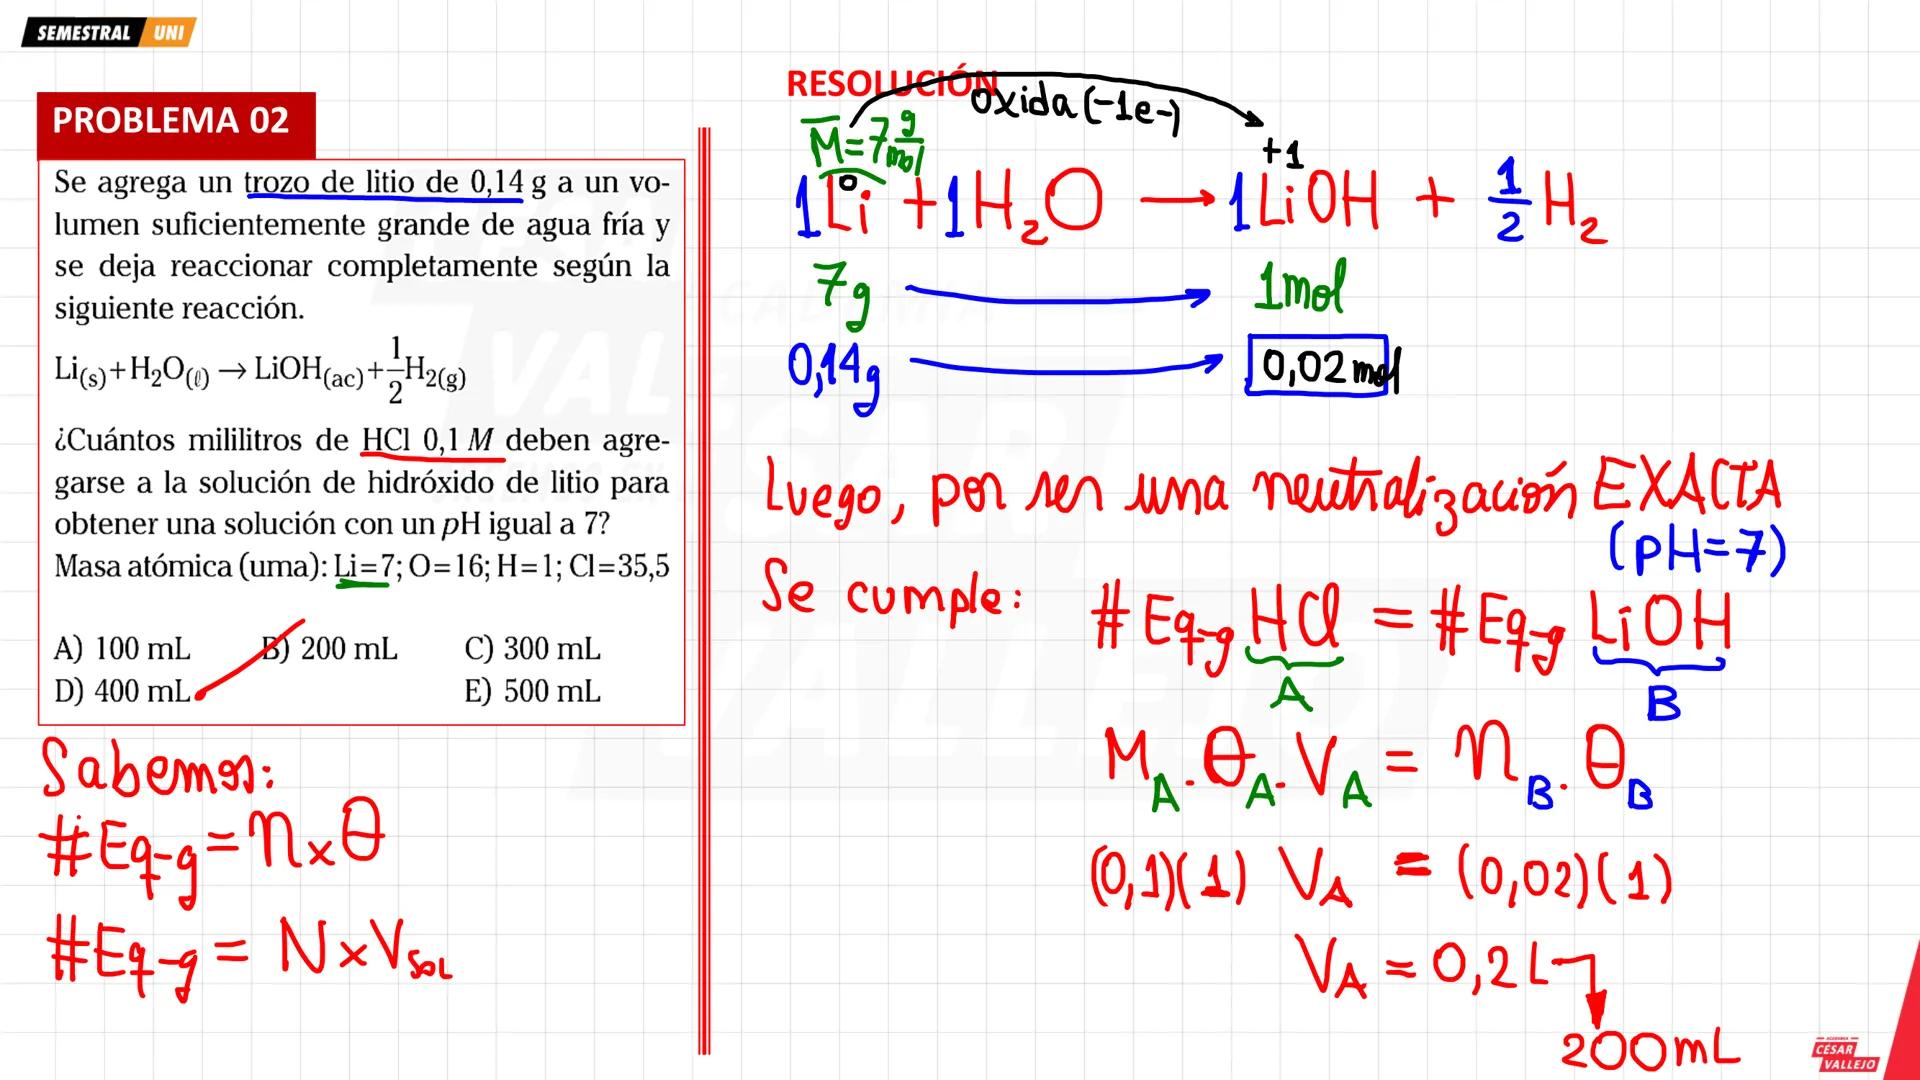 SEMESTRAL UNI
PROBLEMA 02
Se agrega un trozo de litio de 0,14 g a un vo-
lumen suficientemente grande de agua fría y
se deja reaccionar completamente según la
siguiente reacción.
Li(s)+H₂O(ℓ) → LiOH(ac)+1/2H₂(g)
¿Cuántos mililitros de HCl 0,1 M deben agre-
garse a la solución de hidróxido de litio para
obtener una solución con un pH igual a 7?
Masa atómica (uma): Li=7; O=16; H=1; Cl=35,5
A) 100 mL B) 200 mL C) 300 mL
D) 400 mL E) 500 mL
Sabemos:
#Eq-g = n x θ
#Eq-g = N x Vsol
RESOLUCIÓN
oxida (-1e-)
M̅ = 7 g/mol
0 +1
1Li + 1H₂O → 1LiOH + 1/2 H₂
7g → 1mol
0,14g → 0,02 mol
Luego, por ser una neutralización EXACTA
(pH=7)
Se cumple: #Eq-g HCl = #Eq-g LiOH
A B
M_A . θ_A . V_A = n_B . θ_B
(0,1)(1) V_A = (0,02)(1)
V_A = 0,2 L
200mL
ACADEMIA
CÉSAR
VALLEJO